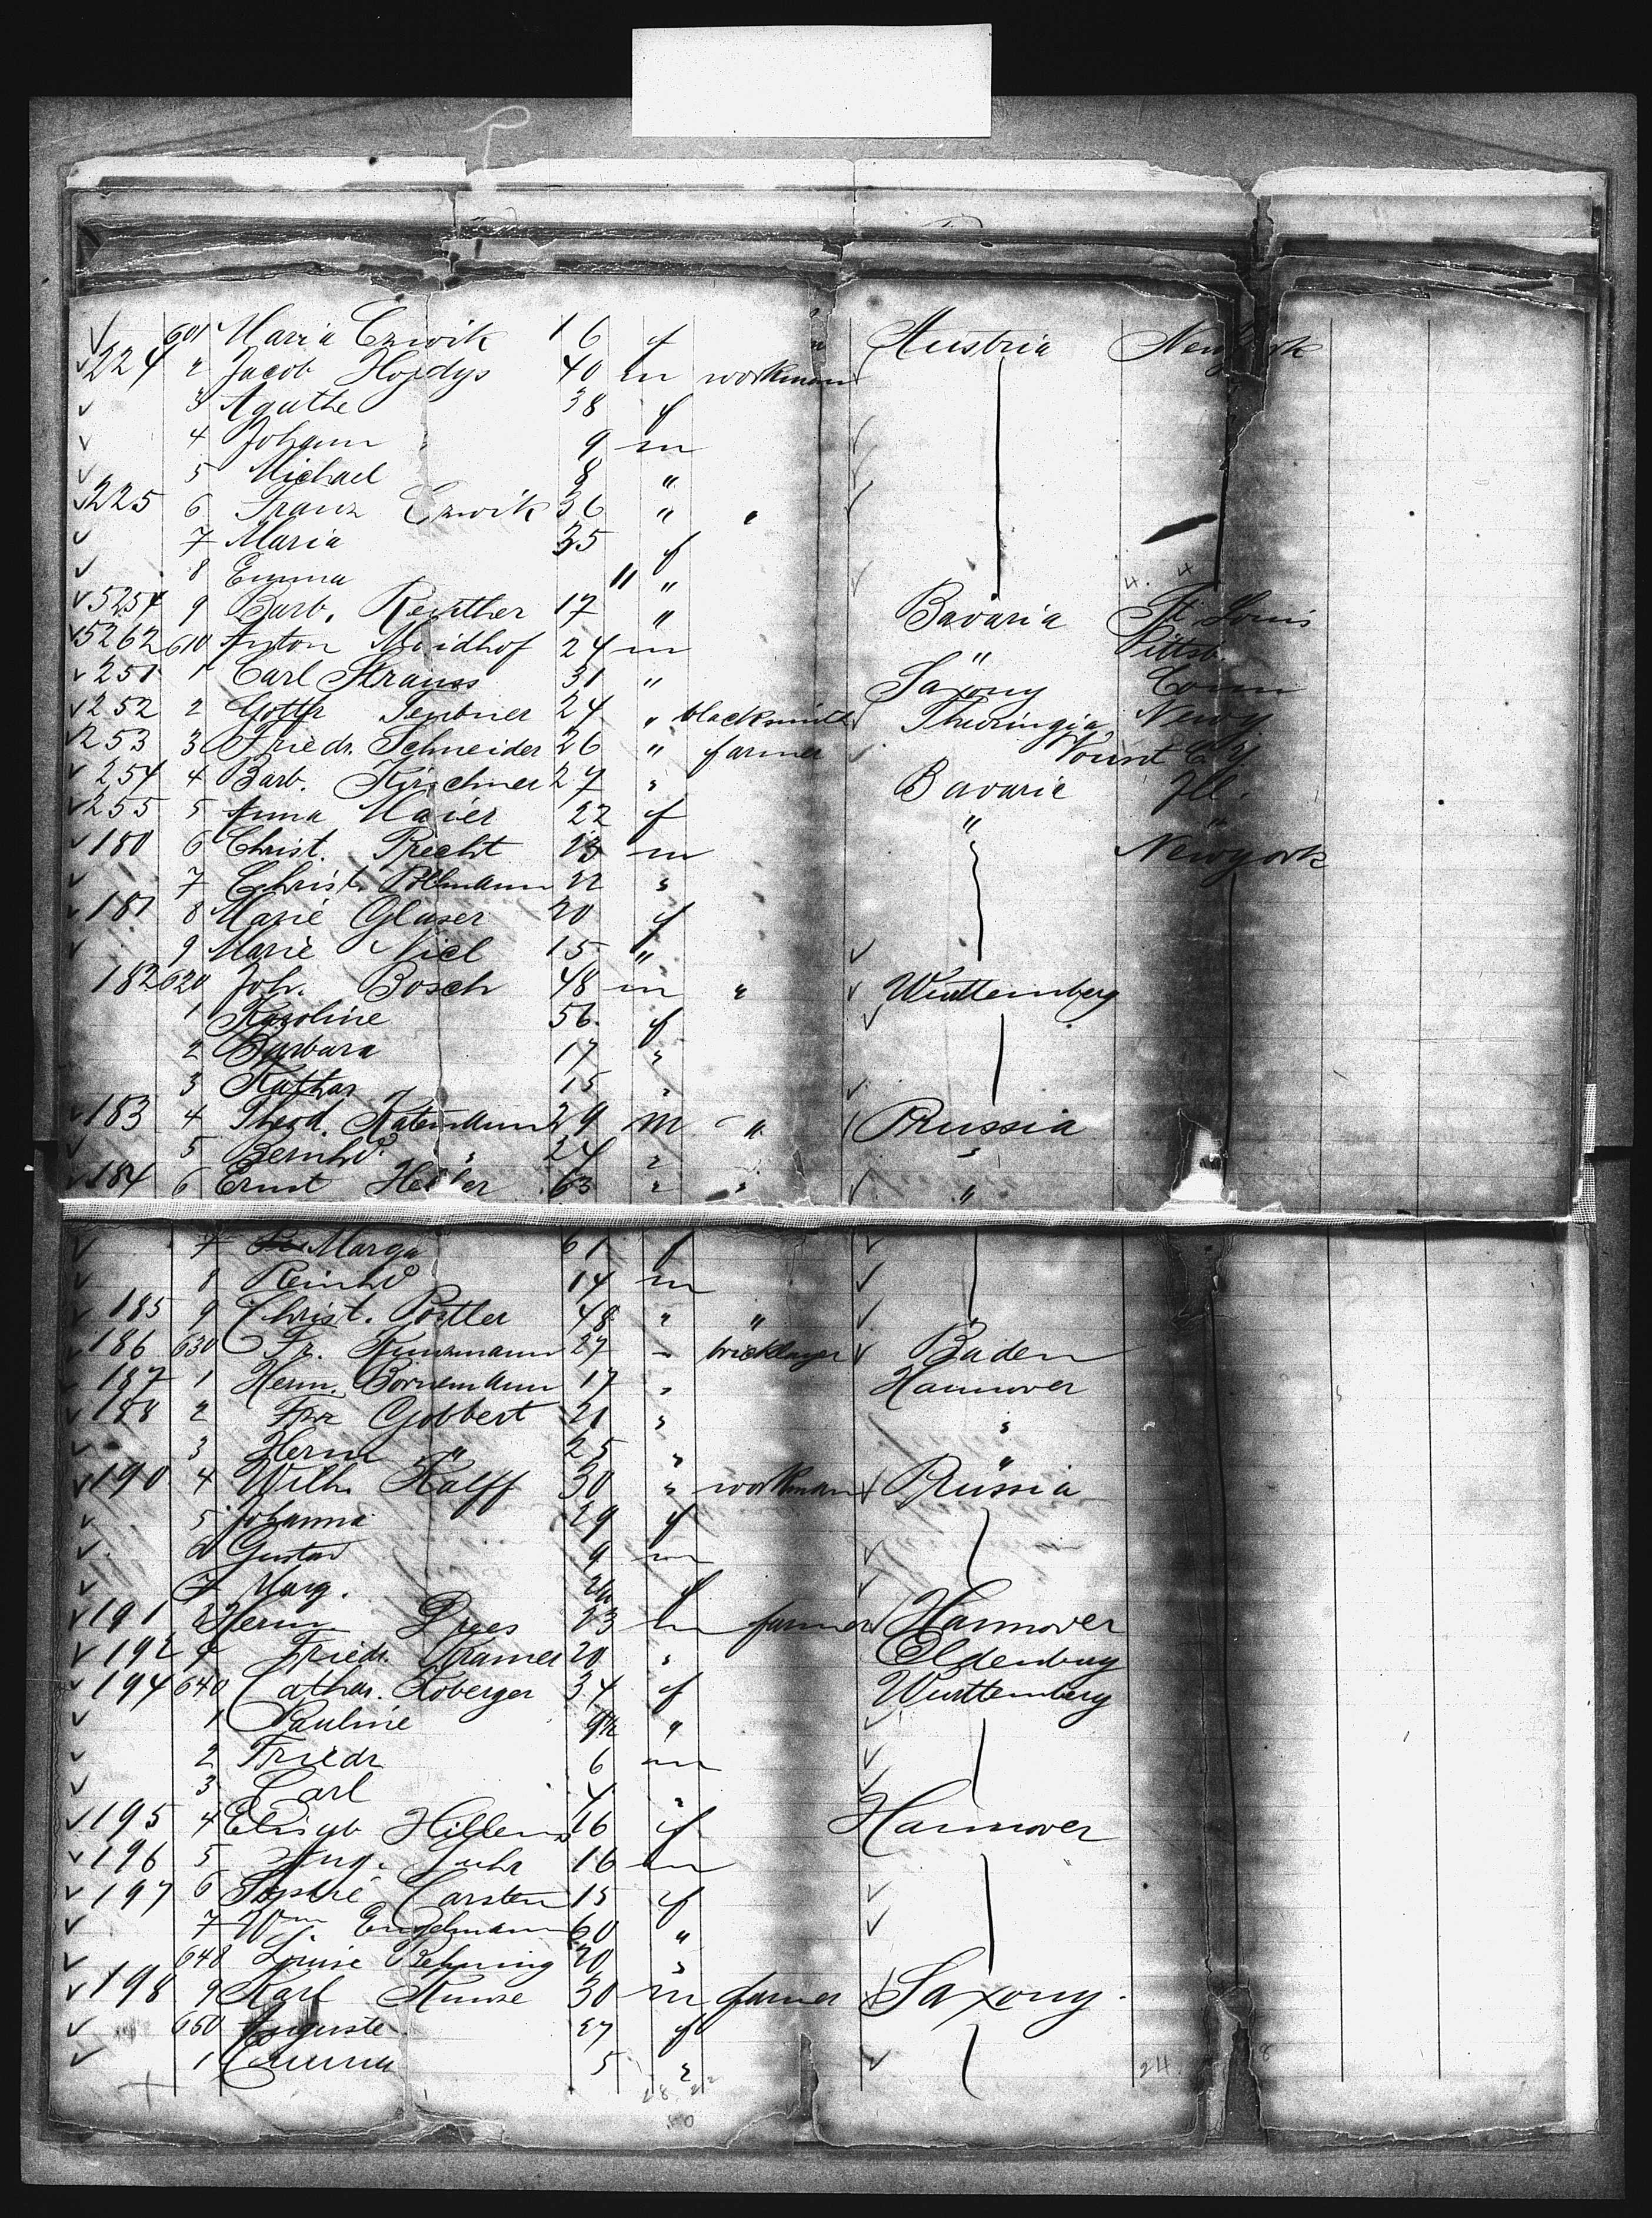 601 Maria Czwik 16 f Austria New York
224 2 Jacob Hojdys 40 m workman
3 Agathe 38 f
4 Johann 9 m
5 Michael 8 "
225 6 Franz Czwik 36 " "
7 Maria 35 f
8 Emma 11 "
5254 9 Barb. Reuther 17 " Bavaria St. Louis
5262 610 Anton Maidhof 24 m " Pittsb.
251 1 Carl Strauss 31 " Saxony Conn
252 2 Gottfr 24 " blacksmith Thuringia Newy
253 3 Friedr. Schneider 26 " farmer
254 4 Barb. Kirschner 27 " Bavaria Ill.
255 5 Anna Maier 22 f " "
180 6 Christ. Precht 23 m " Newyork
7 Christ. Pöllmann 22 "
181 8 Marie Glaser 20 f
9 Marie Niel 15 "
182 620 Joh. Bosch 48 m " Wurttemberg
1 Karoline 56 f
2 Barbara 17 "
3 Kathar 15 "
183 4 Theod. Katemann 29 m " Prussia
5 Bernhd. " 24 " "
184 6 Ernst 63 " " "
7 Marga 61 f
8 Reinhd 14 m
185 9 Christ. Postler 48 " "
186 630 Fr. Kunzmann 27 " bricklayer Baden
187 1 Herm. Bornemann 17 " Hannover
188 2 Gobbert 21 " "
3 Herm " 25 " "
190 4 Wilh. Kalff 30 " workman Prussia
5 Johanna 29 f
6 Gustav 9 m
7 Marg. f
191 8 Herm Drees 23 m farmer Hannover
192 9 Friedr. Kramer 20 " Oldenburg
194 640 Cathar. Koberger 34 f Wurttemberg
1 Pauline "
2 Friedr 6 m
3 Carl 4 "
195 4 Elisab Hillens 16 f Hannover
196 5 Aug. Luhr 16 m
197 6 Sophie Carsten 15 f
7 Wm Engelmann 60 "
648 Louise Behning 20 "
198 9 Karl Kunze 30 m farmer Saxony.
650 Auguste 27 f
1 Emma 5 "
24